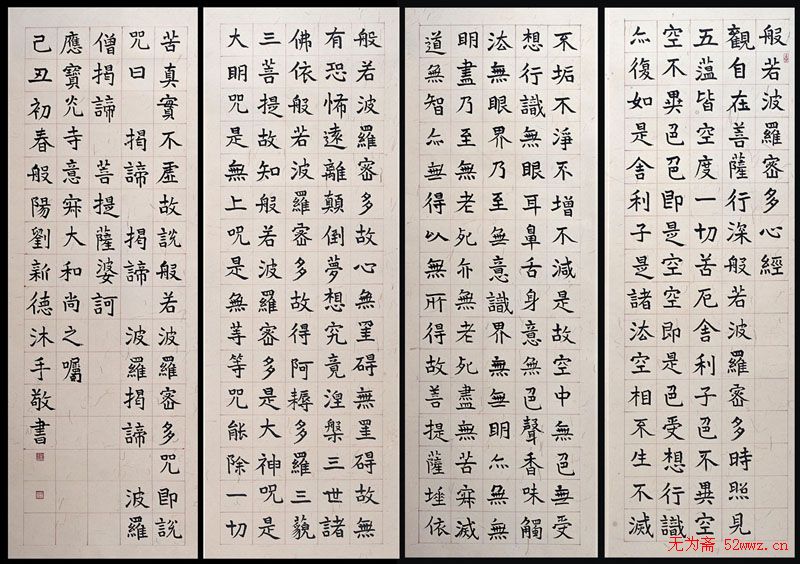 般若波羅密多心經
觀自在菩薩行深般若波羅密多時照見
五蕰皆空度一切苦厄舍利子色不異空
空不異色色即是空空即是色受想行識
亦復如是舍利子是諸法空相不生不滅
不垢不淨不增不減是故空中無色無受
想行識無眼耳鼻舌身意無色聲香味觸
法無眼界乃至無意識界無無明亦無無
明盡乃至無老死亦無老死盡無苦寂滅
道無智亦無得以無所得故菩提薩埵依
般若波羅密多故心無罣碍無罣碍故無
有恐怖遠離顛倒夢想究竟涅槃三世諸
佛依般若波羅密多故得阿耨多羅三藐
三菩提故知般若波羅密多是大神咒是
大明咒是無上咒是無等等咒能除一切
苦真實不虛故說般若波羅密多咒即說
咒曰 揭諦 揭諦 波羅揭諦 波羅
僧揭諦 菩提薩婆訶
應寶光寺意寂大和尚之囑
己丑初春般陽劉新德沐手敬書
无为斋 52wwz.cn